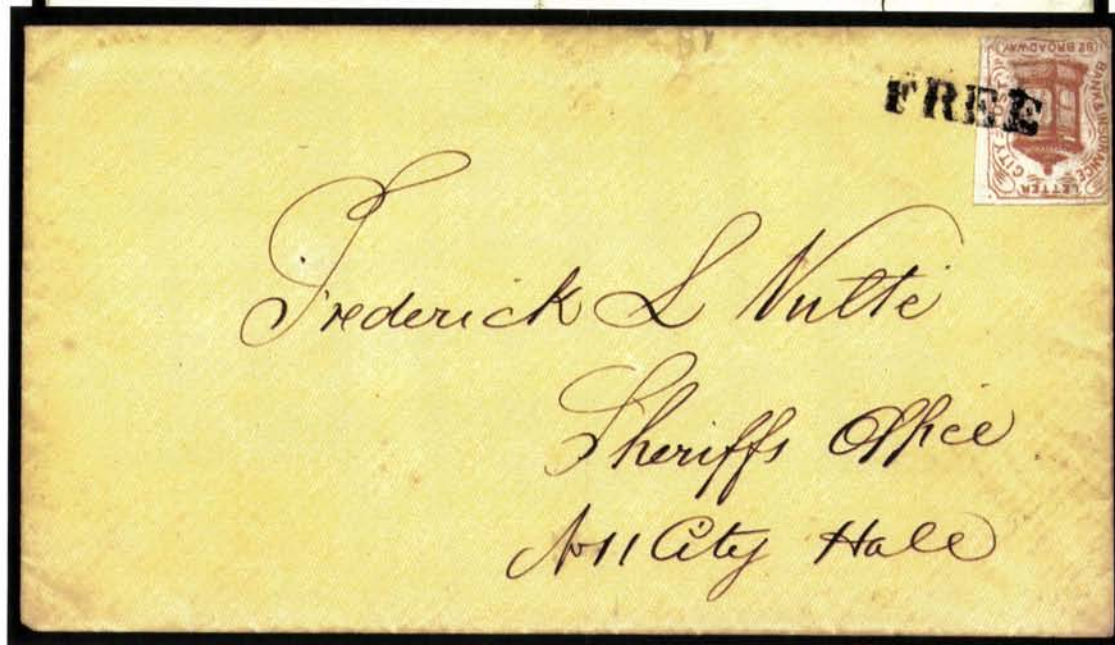 FREE
182 BROADWAY
BANK & INSURANCE
CITY POST
LETTER
Frederick L Nutte
Sheriffs Office
No 11 City Hall